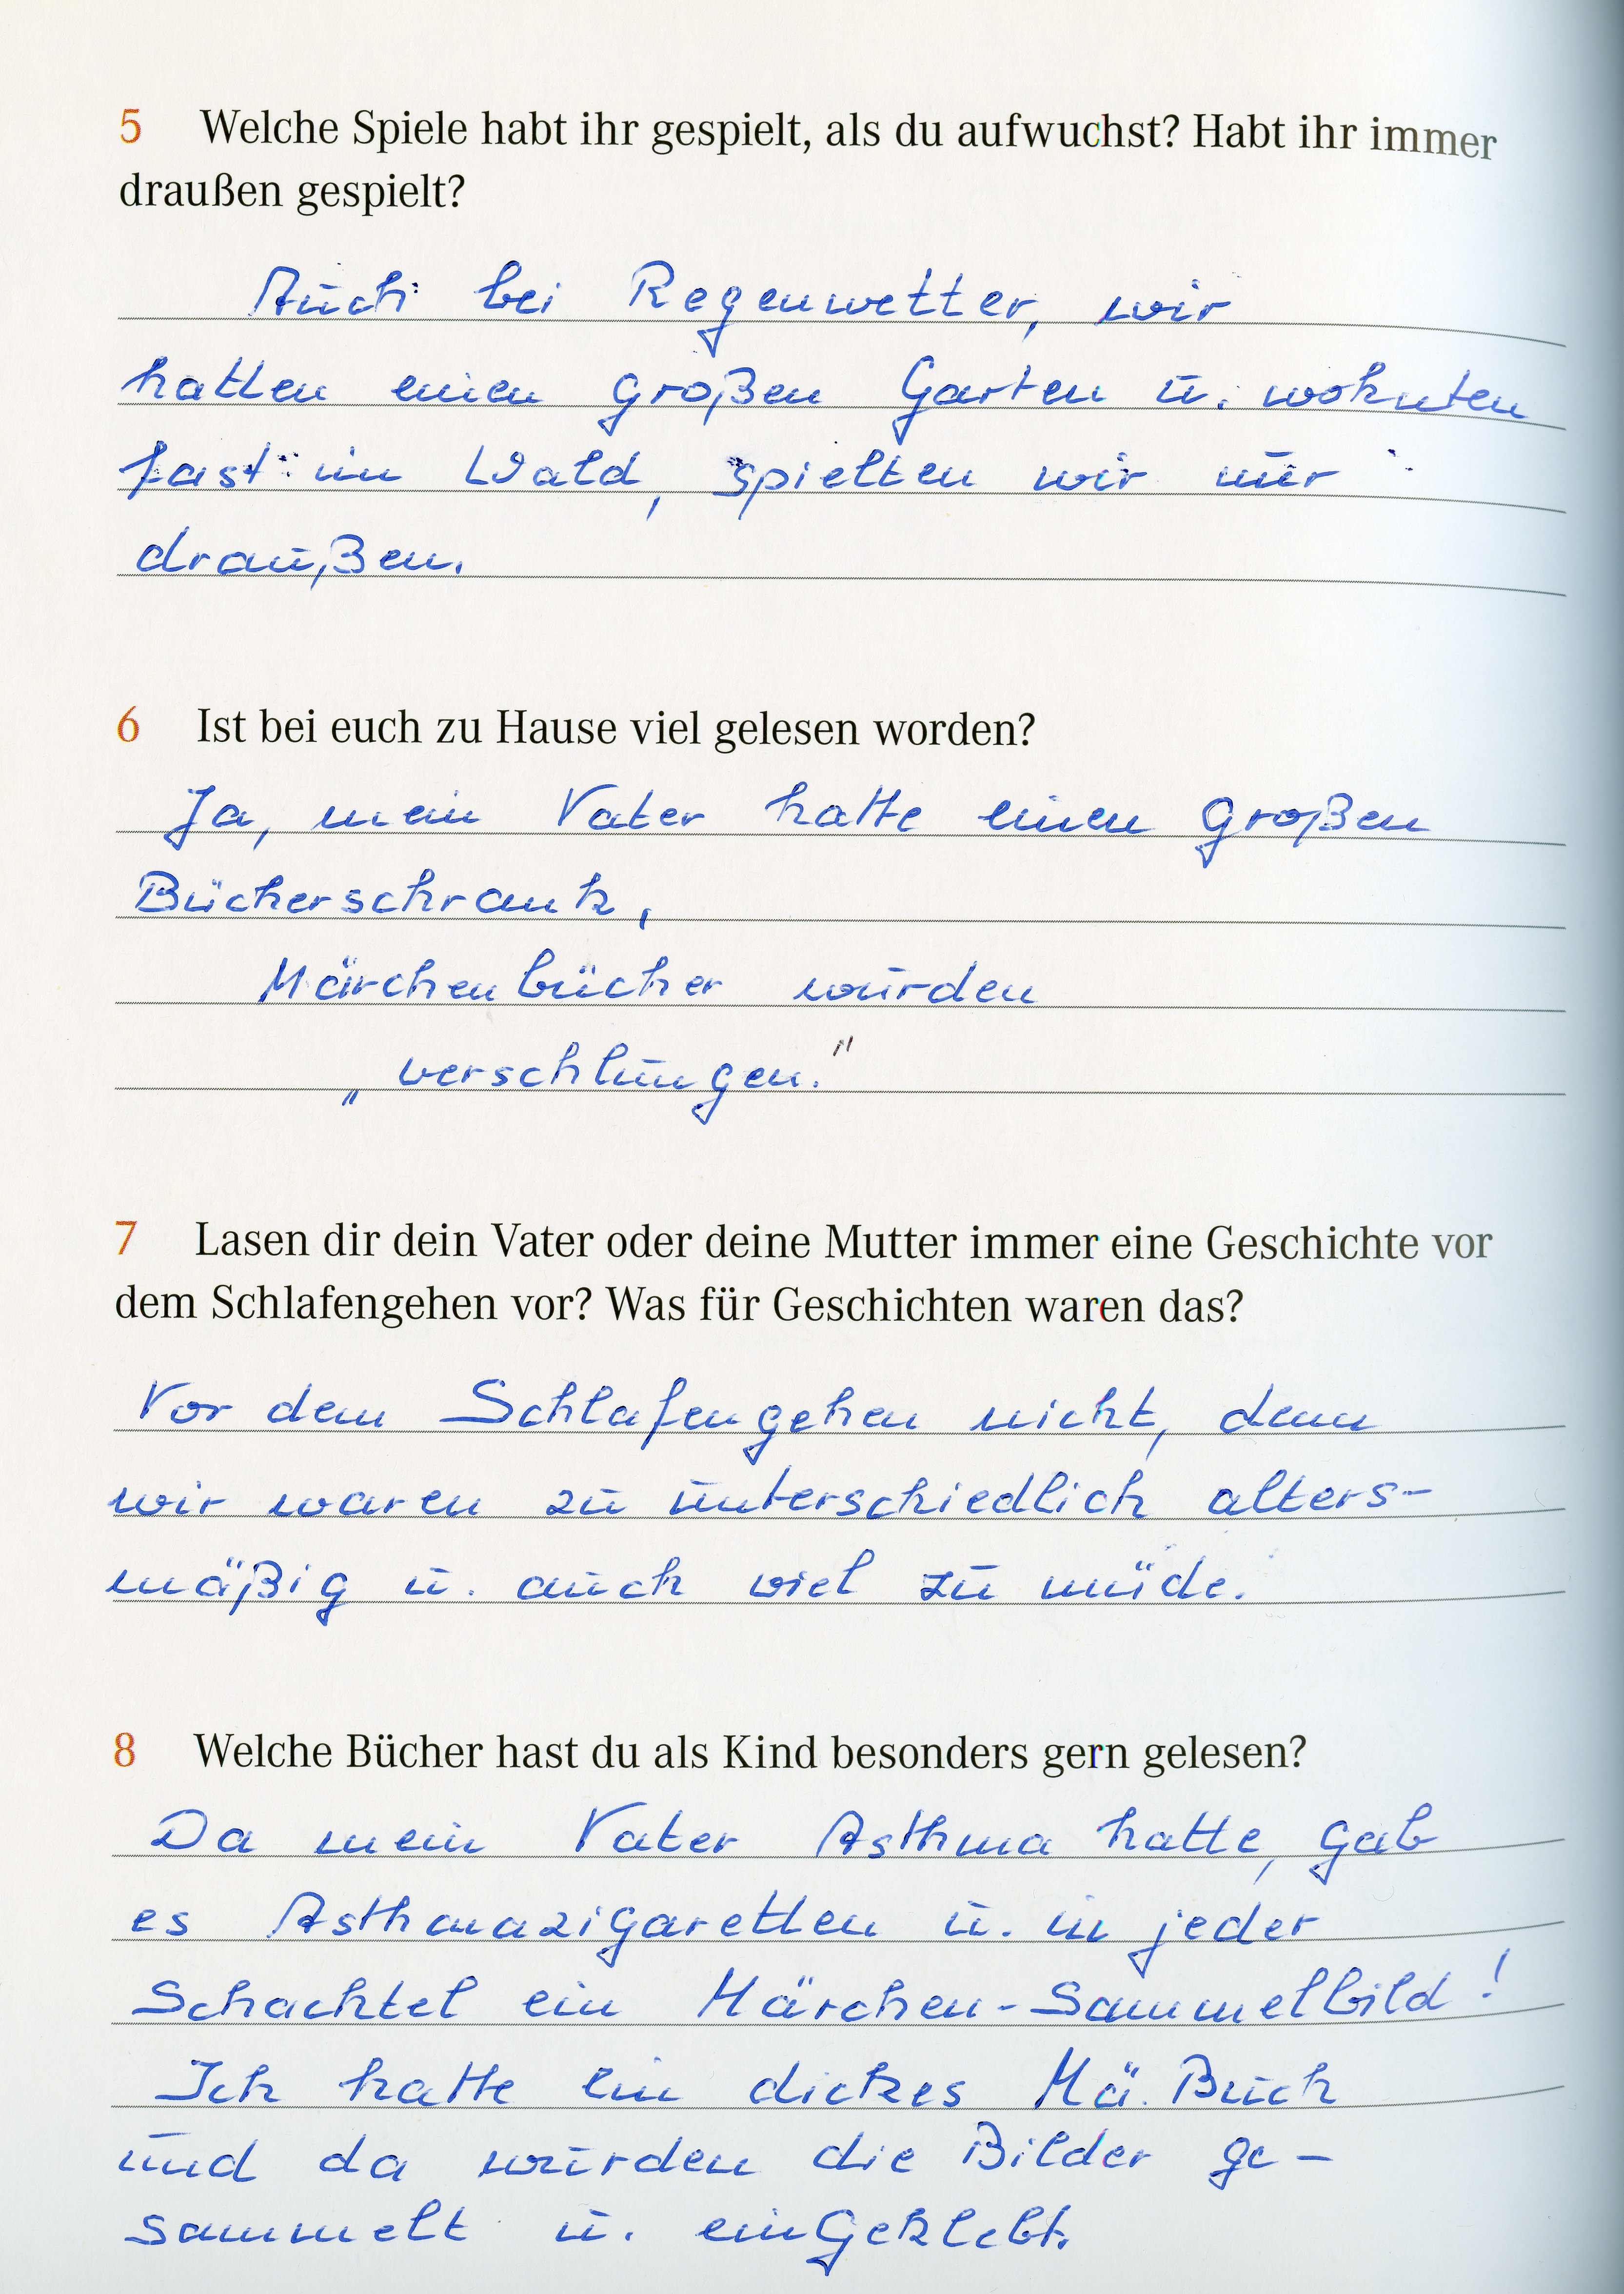 5 Welche Spiele habt ihr gespielt, als du aufwuchst? Habt ihr immer
draußen gespielt?
Auch bei Regenwetter, wir
hatten einen großen Garten u. wohnten
fast im Wald, spielten wir nur
draußen.
6 Ist bei euch zu Hause viel gelesen worden?
Ja, mein Vater hatte einen großen
Bücherschrank,
Märchenbücher wurden
„verschlungen."
7 Lasen dir dein Vater oder deine Mutter immer eine Geschichte vor
dem Schlafengehen vor? Was für Geschichten waren das?
Vor dem Schlafengehen nicht, denn
wir waren zu unterschiedlich alters-
mäßig u. auch viel zu müde.
8 Welche Bücher hast du als Kind besonders gern gelesen?
Da mein Vater Asthma hatte, gab
es Asthmazigaretten u. in jeder
Schachtel ein Märchen-Sammelbild!
Ich hatte ein dickes Mä. Buch
und da wurden die Bilder ge-
sammelt u. eingeklebt.